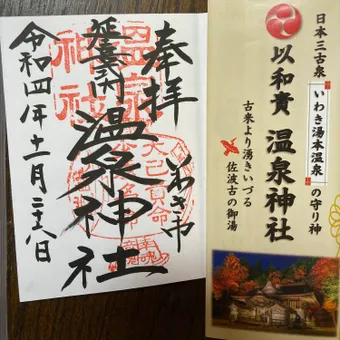 日本三古泉
いわき湯本温泉の守り神
以和貴 温泉神社
古来より湧きいづる
佐波古の御湯
奉拝
いわき市
延喜
温泉神社
令和四年十一月二十八日
温泉
神社
大己貴命